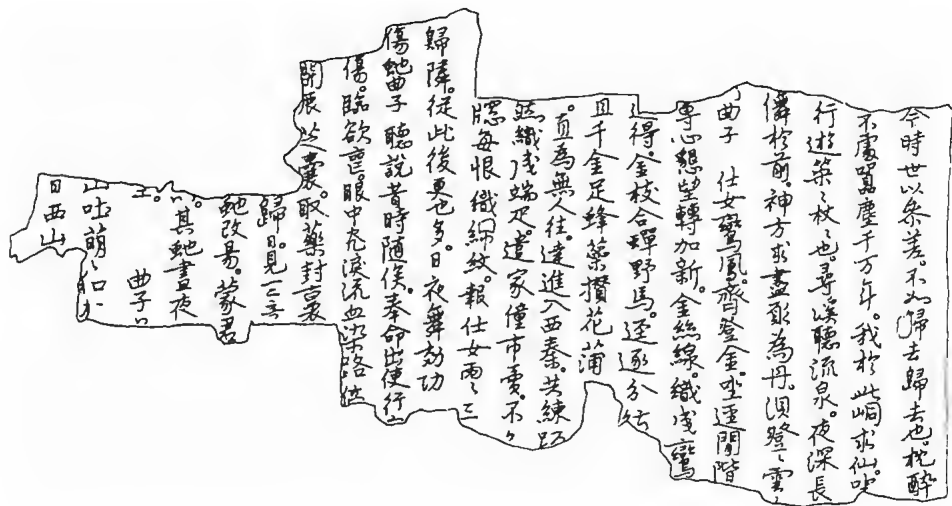 今時世以叅差。不如歸去歸去也。枕醉
不慮囂塵千万年。我於此峒求仙坐。
行遊策〻杖〻也。尋溪聽流泉。夜深長
儛於前。神方求盡取為丹。須登〻雲〻
曲子　仕女鸞鳳。齊登金坐逕閒階
專心懇望轉加新。金絲線。織成鸞
得。金枝合蟬野馬。逕逐分
且千金足蜂藥攢花蒲
。直為無人往。達進入西秦。共練
織成端疋。遣家僮市賣。不
牕每恨織綿紋。報仕女雨〻三
歸隣。從此後更也多。日夜舞効功
傷虵曲子　聽說昔時隨侯。奉命出使行
傷。臨欲壺。眼中淚流血染路
開展
囊。取藥封裹
歸日。見
虵改易。蒙君
。其虵晝夜
曲子
山吐萌〻
日西山